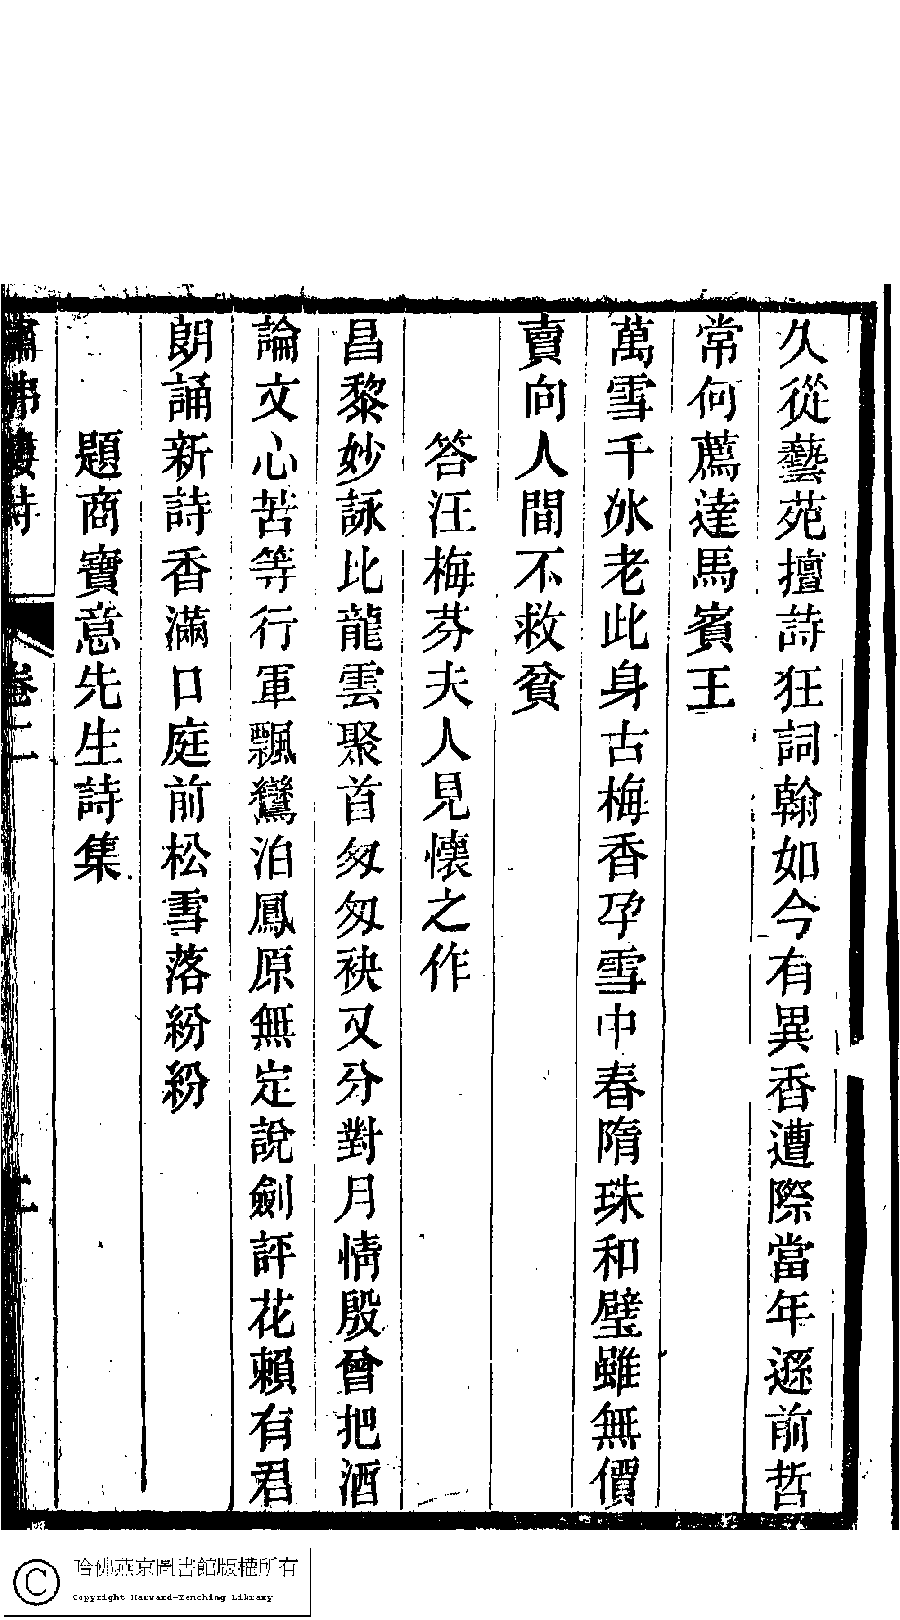 久從藝苑擅詩狂詞翰如今有異香遭際當年遜前哲
常何薦達馬賓王
萬雪千冰老此身古梅香孕雪中春隋珠和璧雖無價
賣向人間不救貧
答汪梅芬夫人見懷之作
昌黎妙詠比龍雲聚首匆匆袂又分對月情殷曾把酒
論文心苦等行軍飄鸞泊鳳原無定說劍評花賴有君
朗誦新詩香滿口庭前松雪落紛紛
題商寶意先生詩集
繡佛樓詩 卷二
哈佛燕京圖書館版權所有
Copyright Harvard-Yenching Library